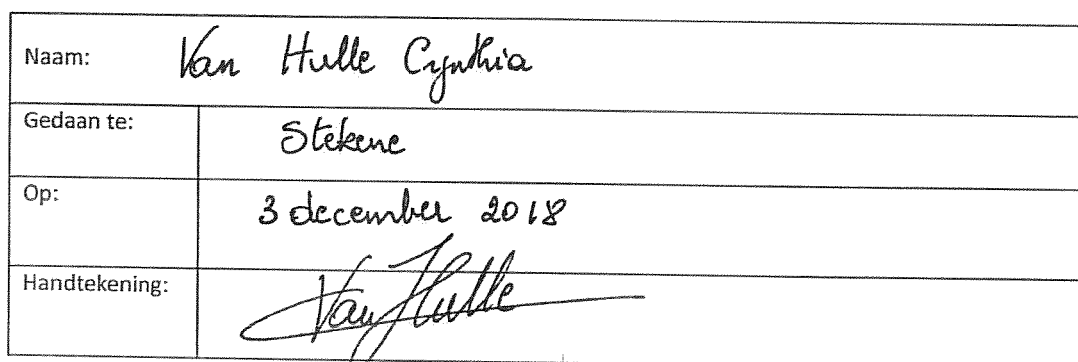 Naam: Van Hulle Cynthia
Gedaan te: Stekene
Op: 3 december 2018
Handtekening: Van Hulle